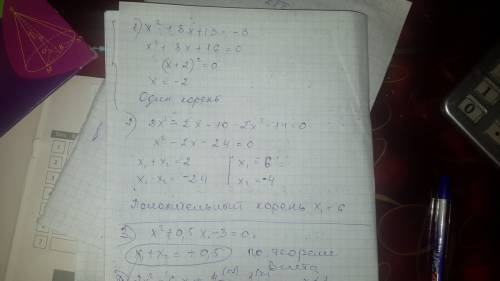 1) x² + 8x + 13 = -3
x² + 8x + 16 = 0
(x + 2)² = 0
x = -2
Один корень
2) 3x² - 2x - 10 - 2x² - 14 = 0
x² - 2x - 24 = 0
x₁ + x₂ = 2 | x₁ = 6
x₁ · x₂ = -24 | x₂ = -4
Положительный корень x₁ = 6
3) x² + 0,5x - 3 = 0
x₁ + x₂ = -0,5 по теореме
Виета